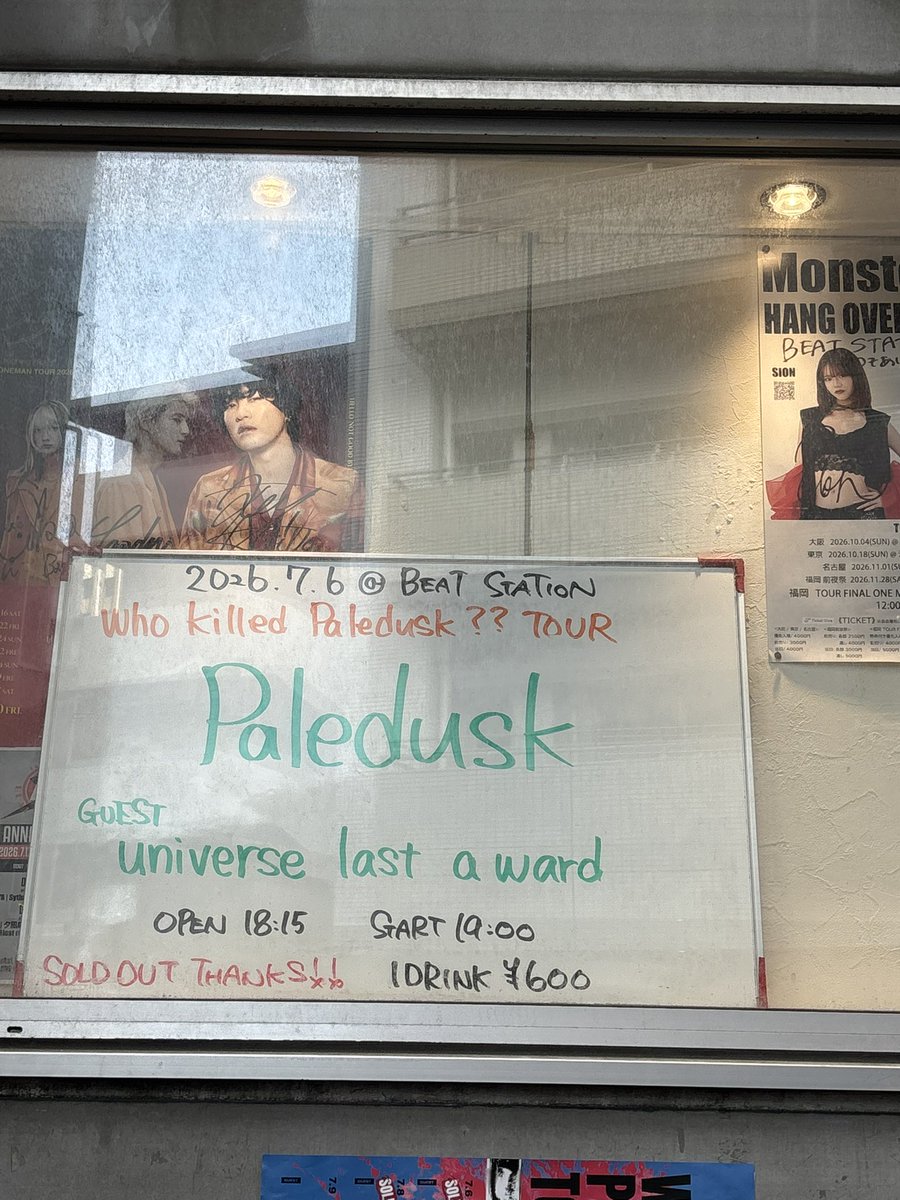 2026.7.6 @ BEAT STATION
Who killed Paledusk?? TOUR
Paledusk
GUEST
universe last a ward
OPEN 18:15 START 19:00
SOLD OUT THANKS!!
1DRINK ¥600
ONEMAN TOUR 2026
Monst
HANG OVE
BEAT STAT
SION
大阪 2026.10.04(SUN) @
東京 2026.10.18(SUN) @
名古屋 2026.11.01(SU
福岡 前夜祭 2026.11.28(SA
福岡 TOUR FINAL ONE M
12:00
《TICKET》
ANNI
2026.7.1
7.9
7.8
SOL
7.6
SOL